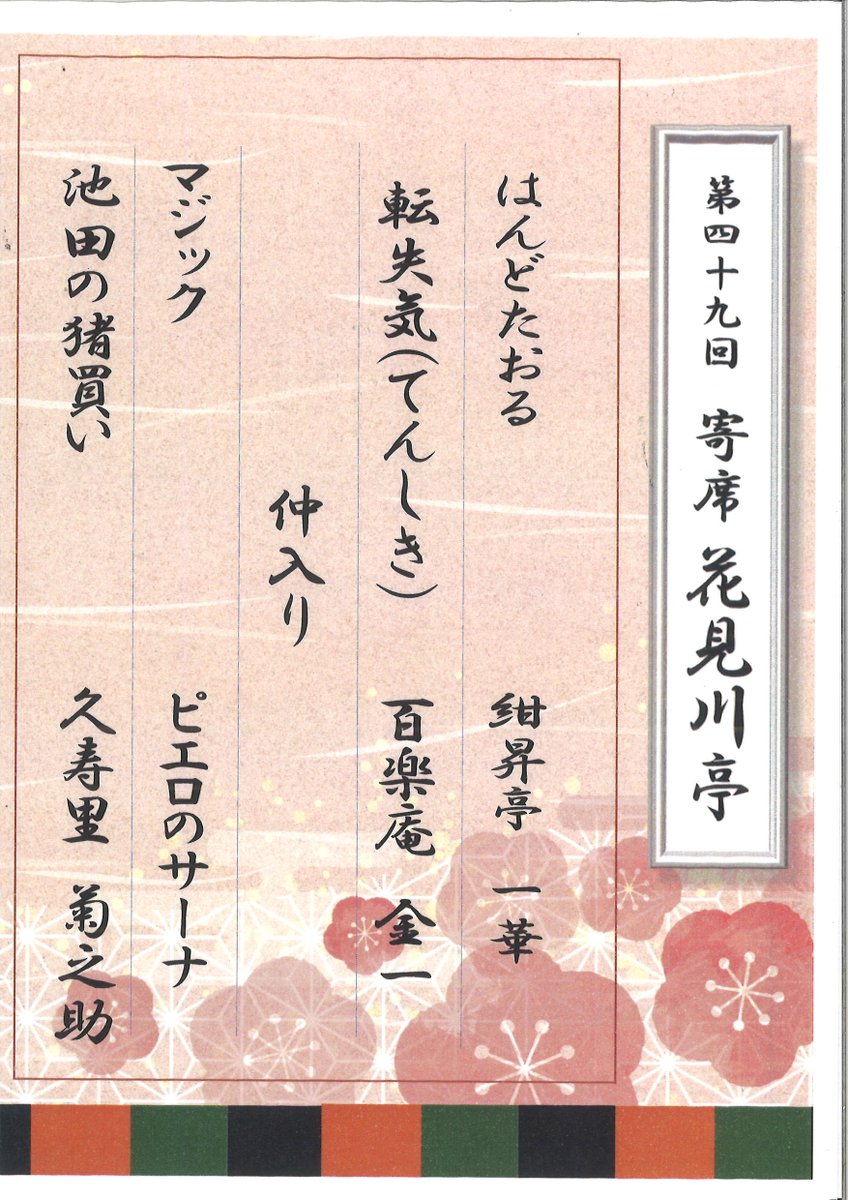 第四十九回 寄席 花見川亭
はんどたおる 紺昇亭 一華
転失気(てんしき) 百楽庵 金一
仲入り
マジック ピエロのサーナ
池田の猪買い 久寿里 菊之助